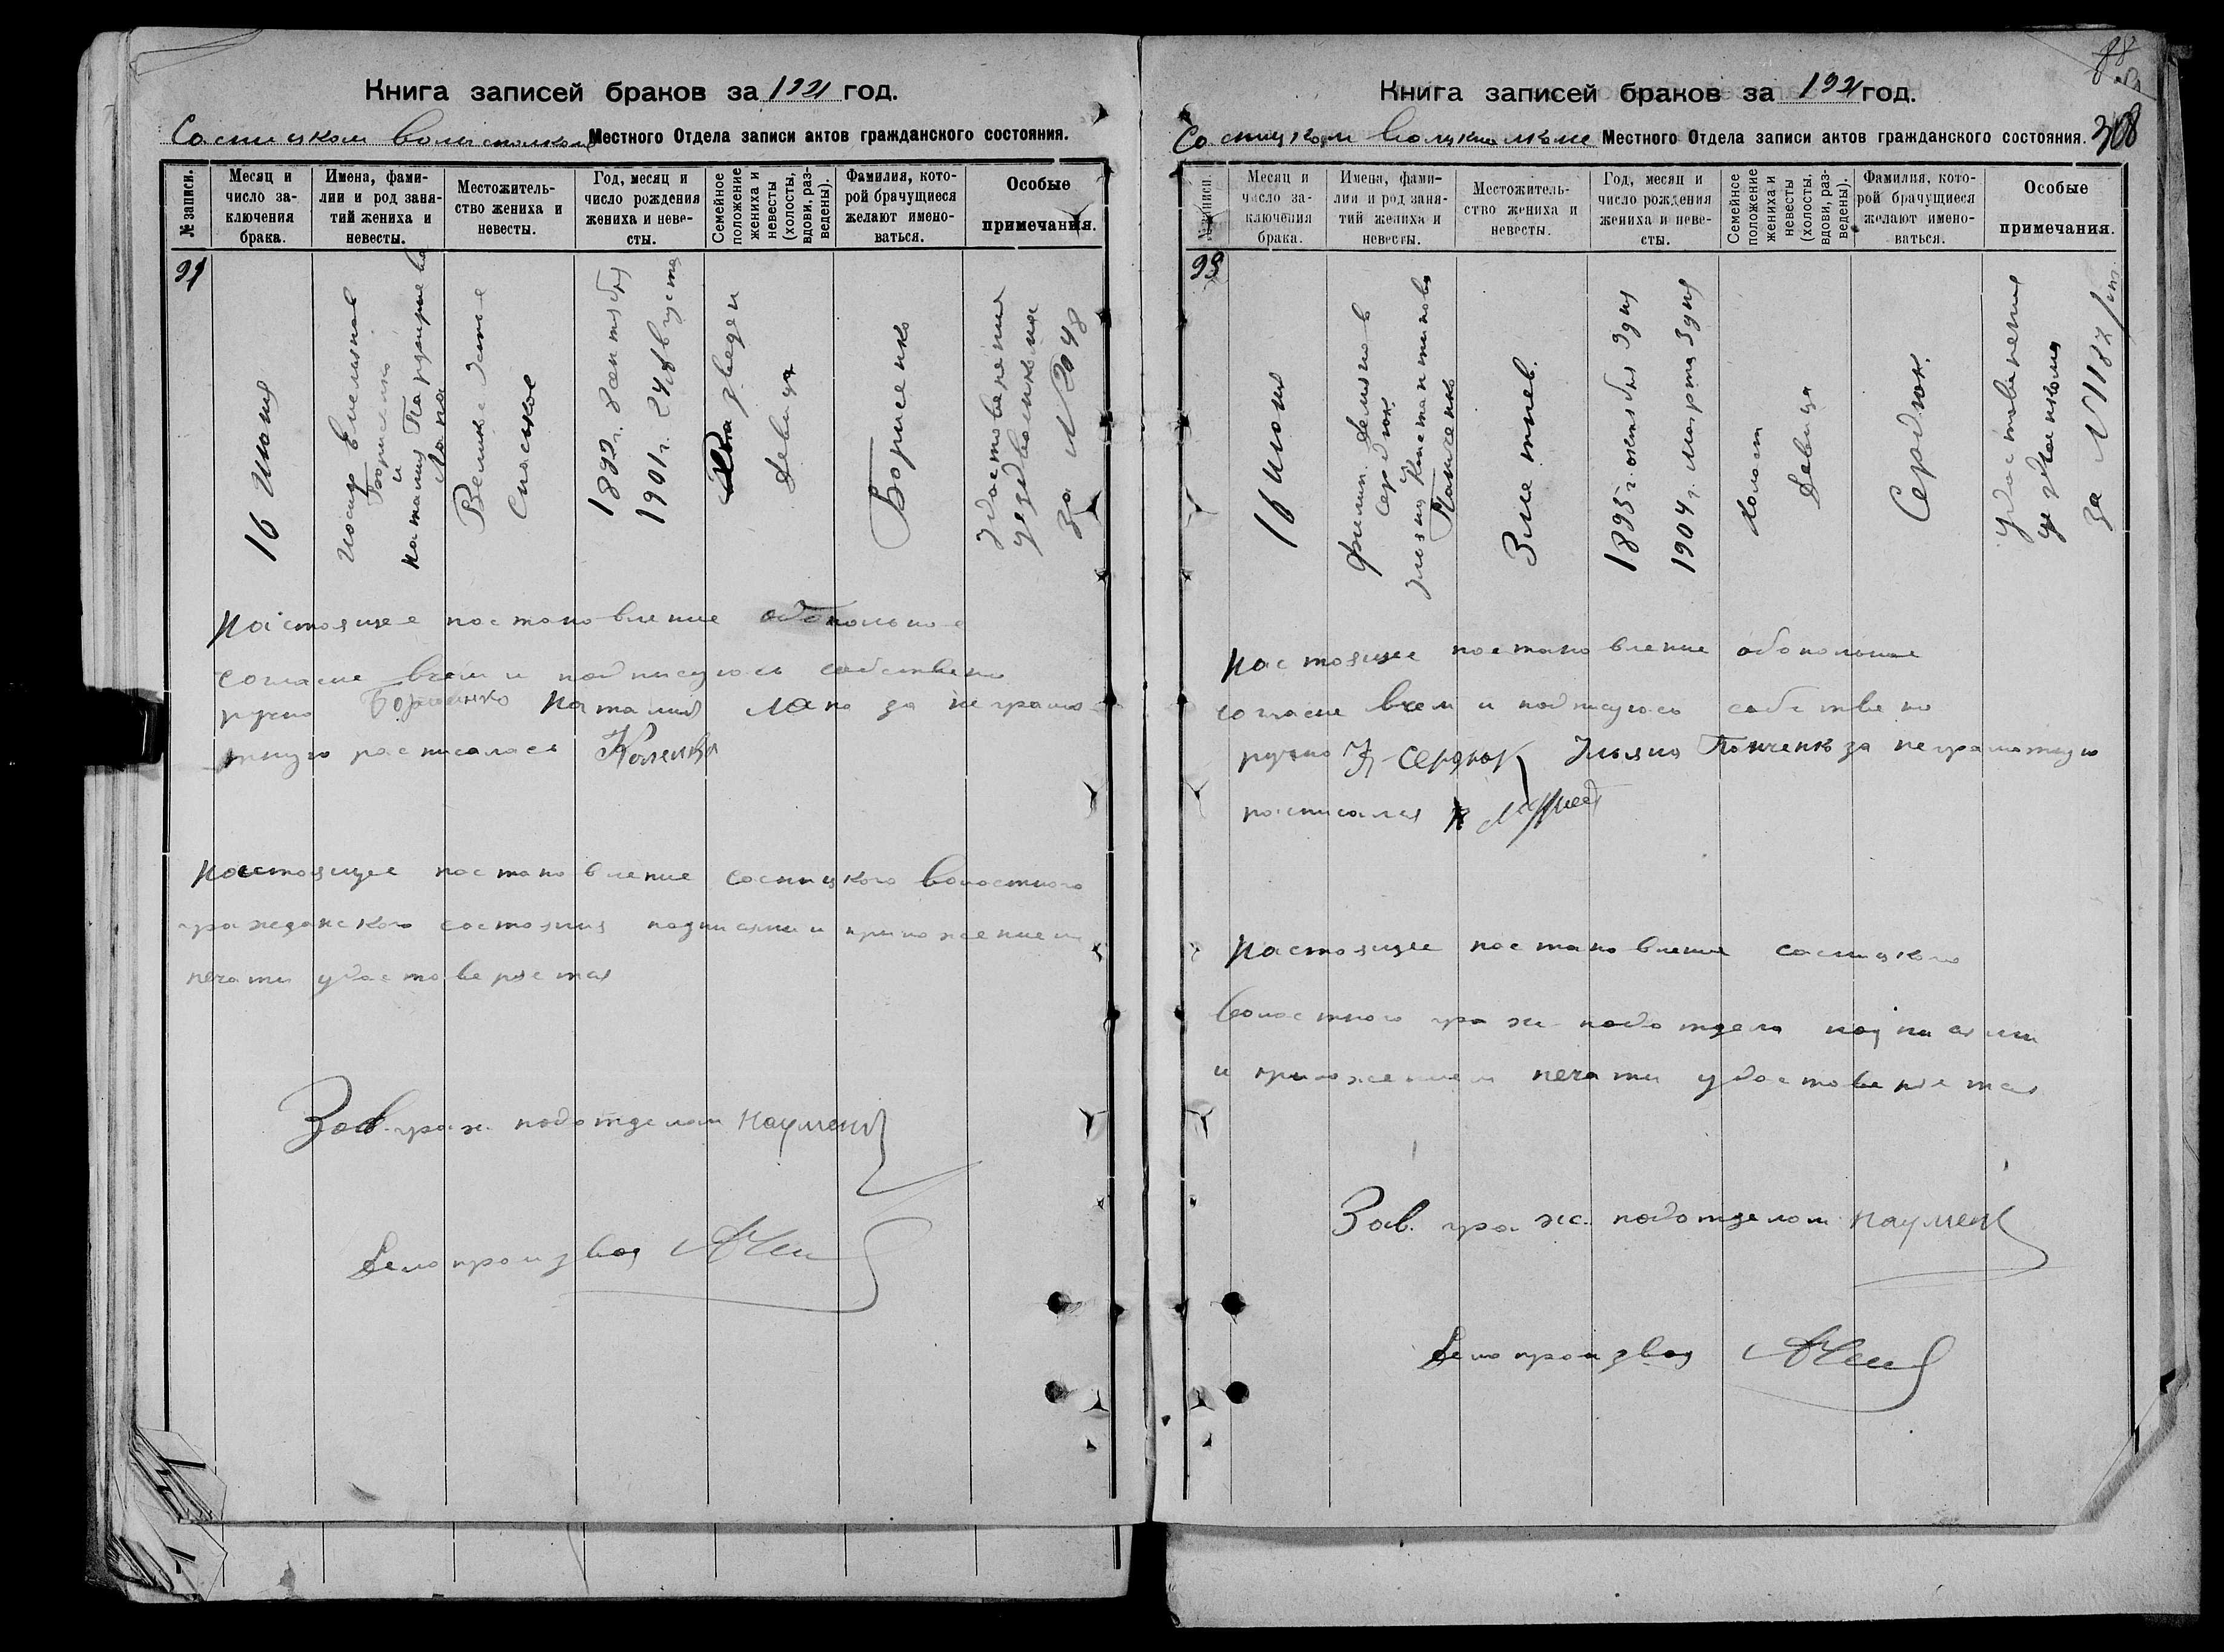 Книга записей браков за 1921 год.
Сосницком волисполкоме Местного Отдела записи актов гражданского состояния.
№ записи.
Месяц и число за-
ключения
брака.
Имена, фами-
лии и род заня-
тий жениха и
невесты.
Местожитель-
ство жениха и
невесты.
Год, месяц и
число рождения
жениха и неве-
сты.
Семейное
положение
жениха и
невесты
(холосты,
вдовы, раз-
ведены).
Фамилия, кото-
рой брачущиеся
желают имено-
ваться.
Особые
примечания.
16 июня
Иосиф Емельянов
Борисенко
и
Наталия
Лапа
Спаское
1892 г. 8 сентября
1901 г. 24 августа
разведен
Девица
Борисенко
Удостоверение
за № 2048
Настоящее постановление обопольное
согласие всем и подписуюсь собствено
ручно Борисенко Наталия Лапа за неграмо
тную расписалася
Настоящее постановление сосницкого волостного
гражданского состояния подписями и приложением
печати удостоверяется
Зав. граж. подотделом Науменко
Делопроизвод
Книга записей браков за 1921 год.
Сосницком волисполкоме Местного Отдела записи актов гражданского состояния.
308
№ записи.
Месяц и
число за-
ключения
брака.
Имена, фами-
лии и род заня-
тий жениха и
невесты.
Местожитель-
ство жениха и
невесты.
Год, месяц и
число рождения
жениха и неве-
сты.
Семейное
положение
жениха и
невесты
(холосты,
вдовы, раз-
ведены).
Фамилия, кото-
рой брачущиеся
желают имено-
ваться.
Особые
примечания.
99
16 июня
Филип Демянов
Сердюк
Ульяна Константинова
Панченко
Зметнев.
1895 г. октября 9 дня
1904 г. марта 3 дня
Холост
Девица
Сердюк.
удостоверения
за № 1187
Настоящее постановление обопольное
согласие всем и подписуюсь собствено
ручно Ф Сердюк Ульяна Панченко за неграмотную
расписался
Настоящее постановление сосницкого
волостного граж. подотдела подписями
и приложением печати удостоверяется
Зав. граж. подотделом Науменко
Делопроизвод